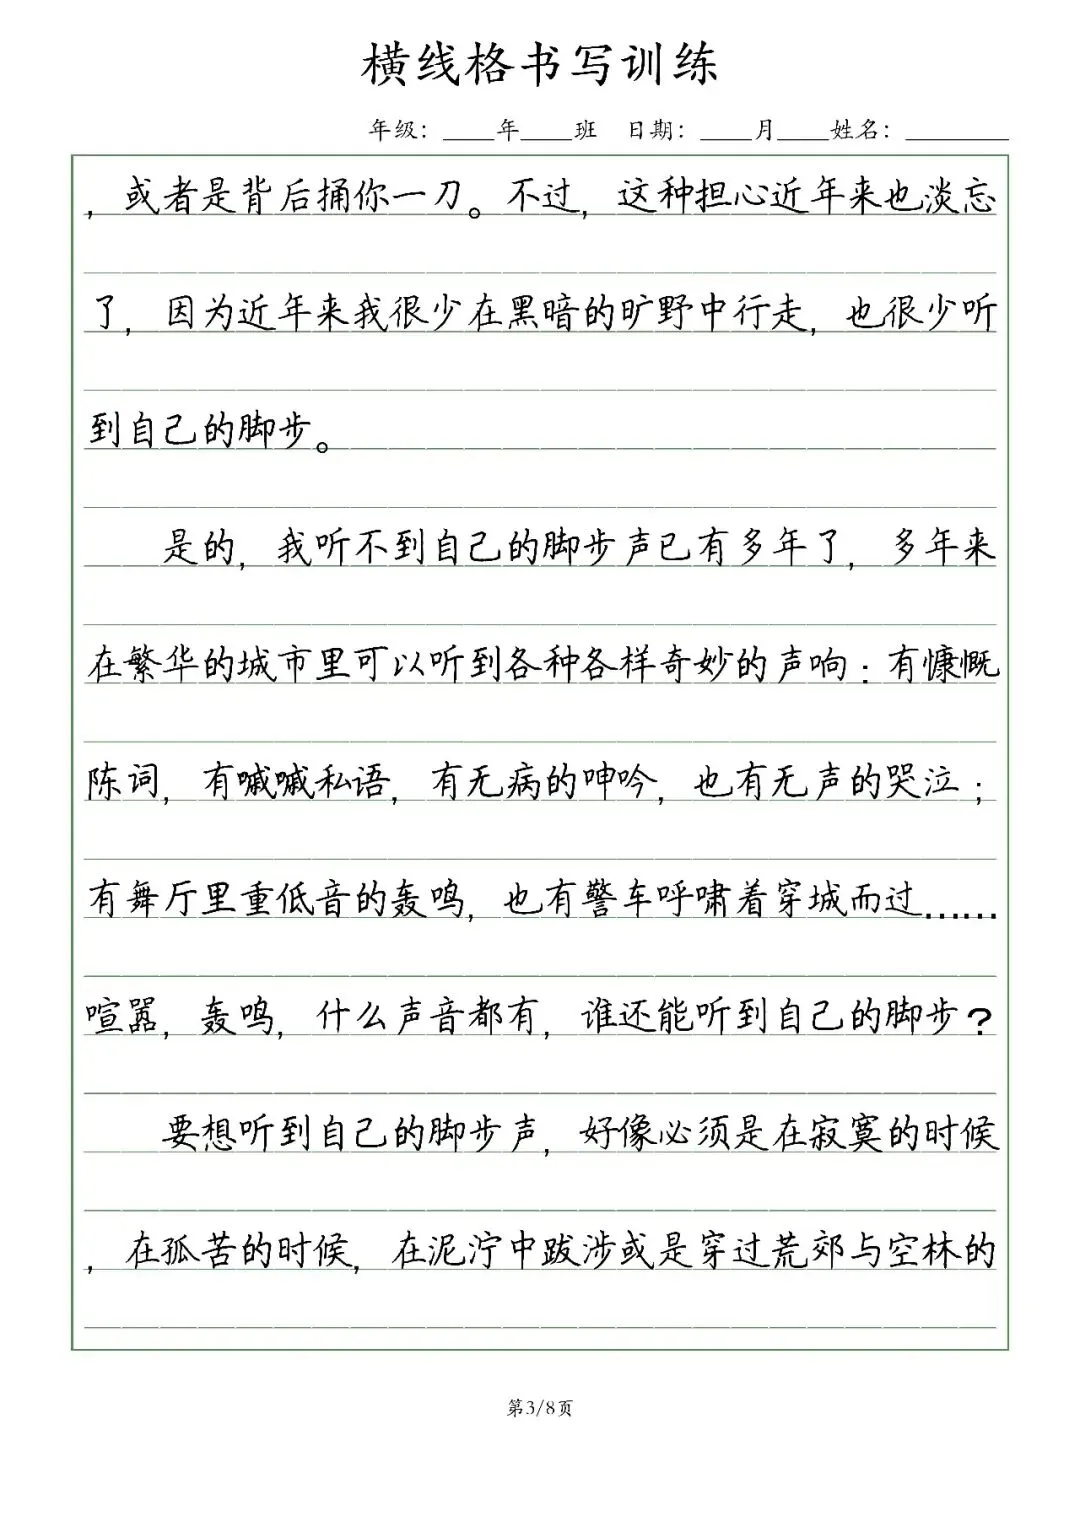 横线格书写训练
年级：____年____班 日期：____月____姓名：________
，或者是背后捅你一刀。不过，这种担心近年来也淡忘
了，因为近年来我很少在黑暗的旷野中行走，也很少听
到自己的脚步。
是的，我听不到自己的脚步声已有多年了，多年来
在繁华的城市里可以听到各种各样奇妙的声响：有慷慨
陈词，有嘁嘁私语，有无病的呻吟，也有无声的哭泣；
有舞厅里重低音的轰鸣，也有警车呼啸着穿城而过……
喧嚣，轰鸣，什么声音都有，谁还能听到自己的脚步？
要想听到自己的脚步声，好像必须是在寂寞的时候
，在孤苦的时候，在泥泞中跋涉或是穿过荒郊与空林的
第3/8页